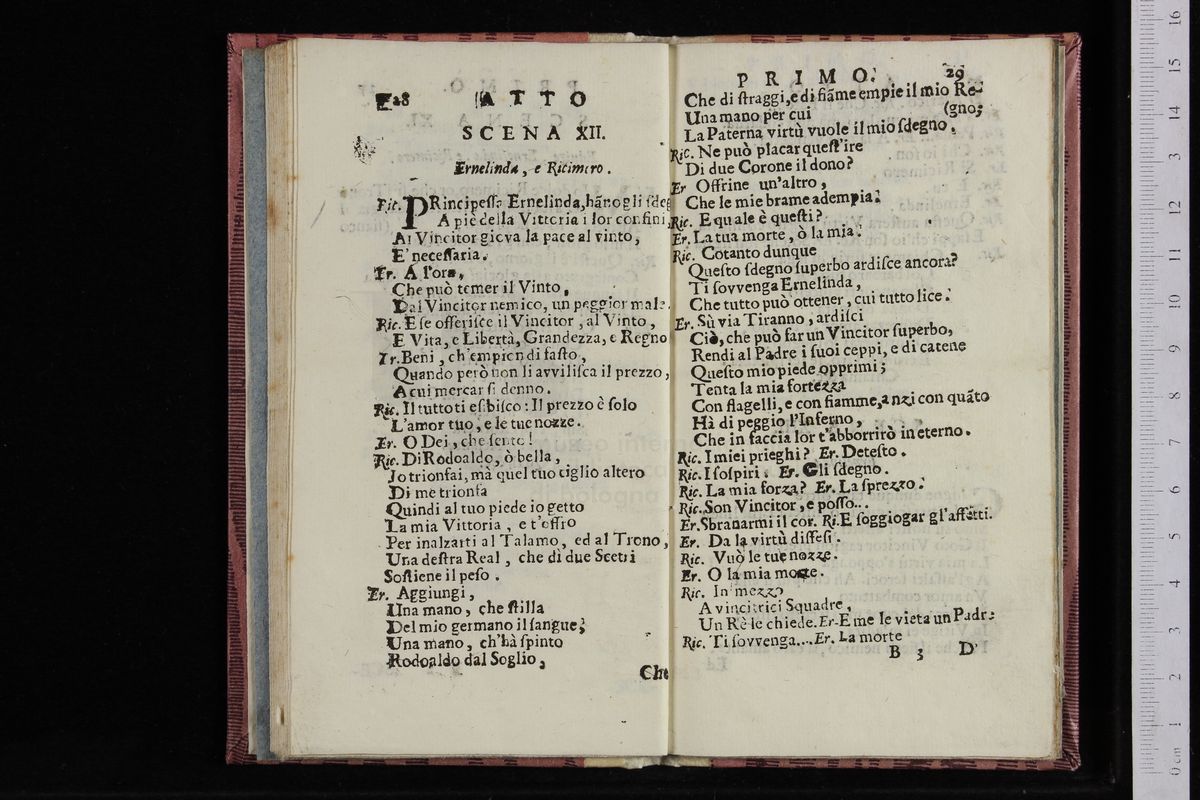 28 ATTO
SCENA XII.
Ernelinda, e Ricimero.
Ric. PRincipessa Ernelinda, hãno gli sde
A piè della Vittoria i lor confini,
Al Vincitor giova la pace al vinto,
E' necessaria.
Er. A l'ora,
Che può temer il Vinto,
Dal Vincitor nemico, un peggior male.
Ric. E se offerisce il Vincitor, al Vinto,
E Vita, e Libertà, Grandezza, e Regno
Er. Beni, ch'empion di fasto,
Quando però non li avvilisca il prezzo,
A cui mercar si denno.
Ric. Il tutto ti esibisco: Il prezzo è solo
L'amor tuo, e le tue nozze.
Er. O Dei, che sento!
Ric. Di Rodoaldo, ò bella,
Io trionfai, mà quel tuo ciglio altero
Di me trionfa
Quindi al tuo piede io getto
La mia Vittoria, e t'offro
Per inalzarti al Talamo, ed al Trono,
Una destra Real, che di due Scetri
Sostiene il peso.
Er. Aggiungi,
Una mano, che stilla
Del mio germano il sangue;
Una mano, ch'hà spinto
Rodoaldo dal Soglio,
Che
PRIMO. 29
Che di straggi, e di fiãme empie il mio Re-
Una mano per cui (gno;
La Paterna virtù vuole il mio sdegno.
Ric. Ne può placar quest'ire
Di due Corone il dono?
Er Offrine un'altro,
Che le mie brame adempia.
Ric. E quale è questi?
Er. La tua morte, ò la mia.
Ric. Cotanto dunque
Questo sdegno superbo ardisce ancora?
Ti sovvenga Ernelinda,
Che tutto può ottener, cui tutto lice.
Er. Sù via Tiranno, ardisci
Ciò, che può far un Vincitor superbo,
Rendi al Padre i suoi ceppi, e di catene
Questo mio piede opprimi;
Tenta la mia fortezza
Con flagelli, e con fiamme, anzi con quãto
Hà di peggio l'Inferno,
Che in faccia lor t'abborrirò in eterno.
Ric. I miei prieghi? Er. Detesto.
Ric. I sospiri. Er. Gli sdegno.
Ric. La mia forza? Er. La sprezzo.
Ric. Son Vincitor, e posso...
Er. Sbranarmi il cor. Ri. E soggiogar gl'affetti.
Er. Da la virtù diffesi.
Ric. Vuò le tue nozze.
Er. O la mia morte.
Ric. In mezzo
A vincitrici Squadre,
Un Rè le chiede. Er- E me le vieta un Padre
Ric. Ti sovvenga... Er. La morte
B 3 D'